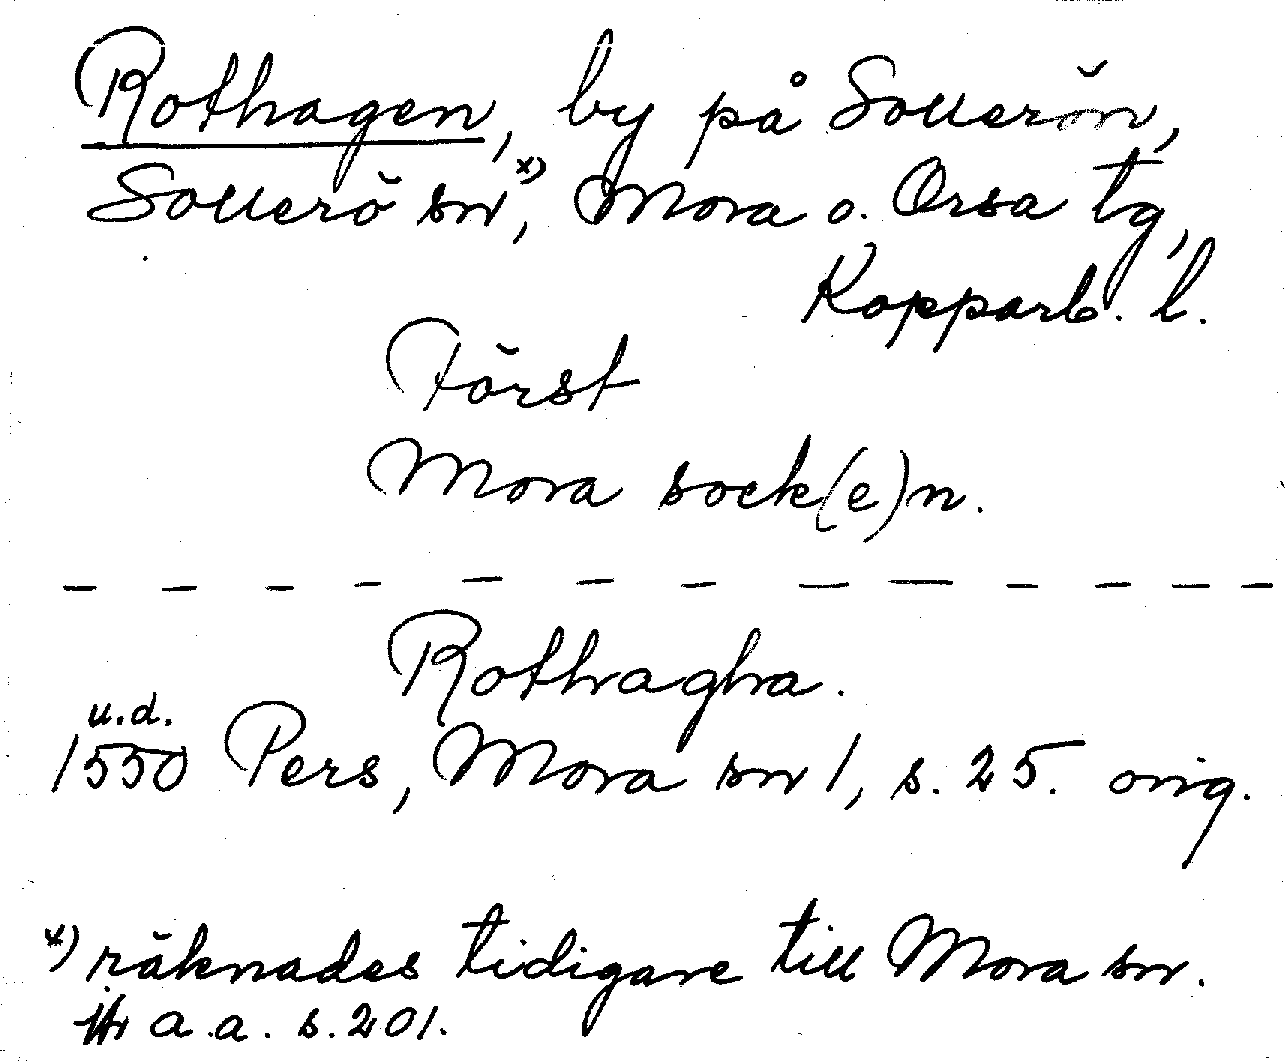 Rothagen, by på Sollerön,
Sollerö sn*), Mora o. Orsa tg,
Kopparb. l.
Först
Mora sock(e)n.
Rothraghra.
u.d.
1550 Pers, Mora sn 1, s. 25. orig.
*) räknades tidigare till Mora sn.
a.a. s. 201.